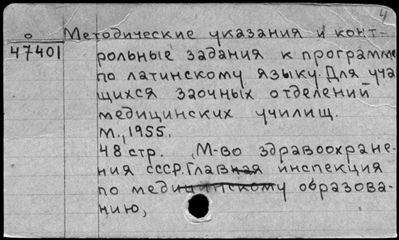 4
о Методические указания и конт-
47401 рольные задания к программе
по латинскому языку. Для уча
щихся заочных отделений
медицинских училищ.
М., 1955.
48 стр. (М-во здравоохране-
ния СССР. Главная инспекция
по медицинскому образова-
нию,